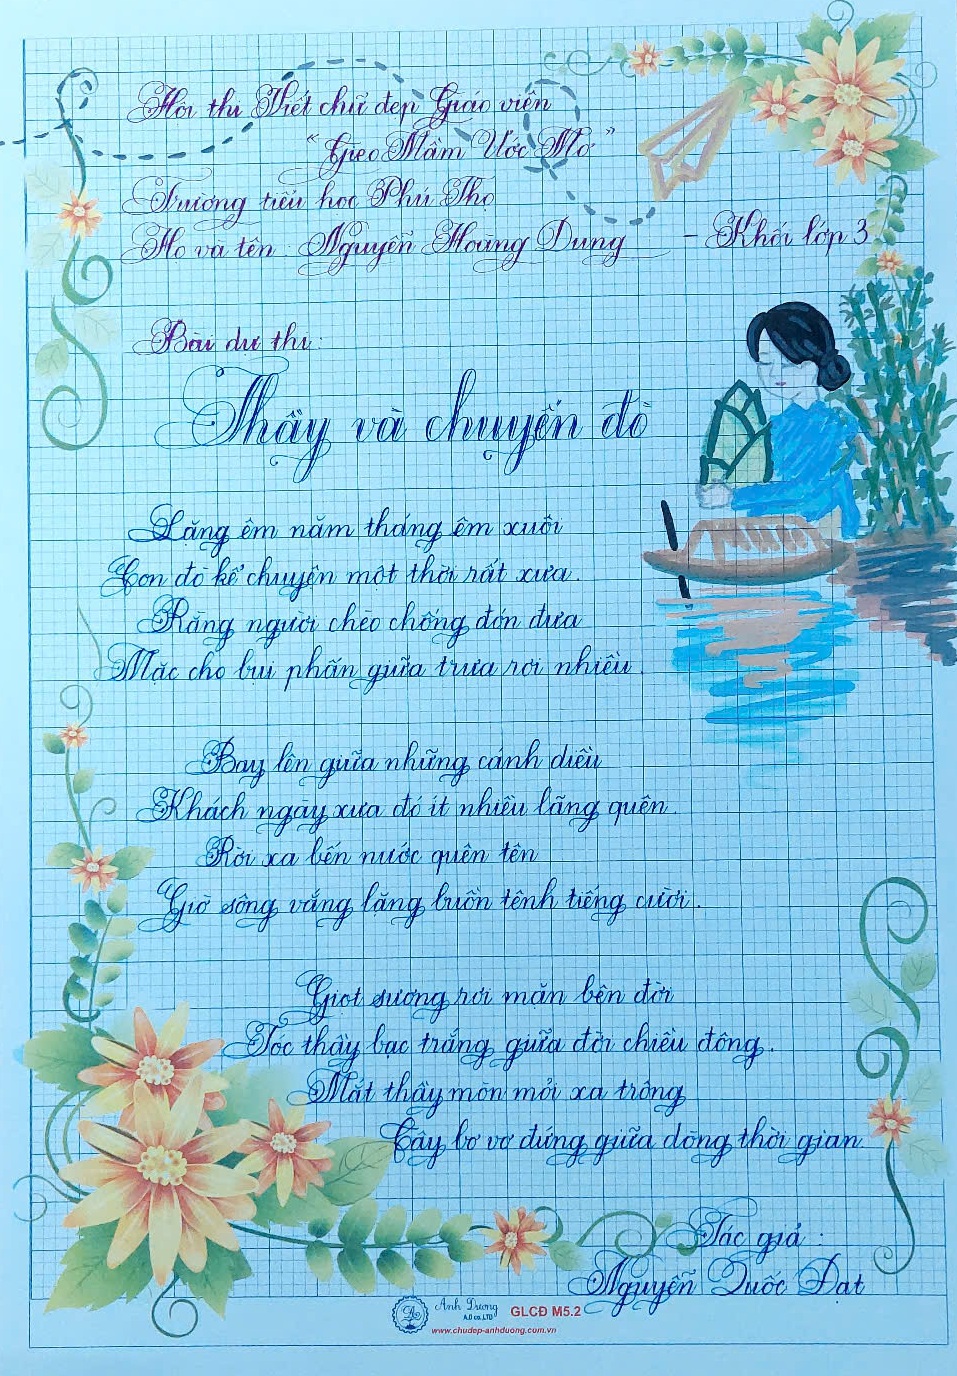 Hội thi Viết chữ đẹp Giáo viên
“Gieo Mầm Ước Mơ”
Trường tiểu học Phú Thọ
Họ và tên: Nguyễn Hoàng Dung - Khối lớp 3
Bài dự thi:
Thầy và chuyến đò
Lặng êm năm tháng êm xuôi
Con đò kể chuyện một thời rất xưa.
Rằng người chèo chống đón đưa
Mặc cho bụi phấn giữa trưa rơi nhiều.
Bay lên giữa những cánh diều
Khách ngày xưa đó ít nhiều lãng quên.
Rời xa bến nước quên tên
Giờ sông vắng lặng buồn tênh tiếng cười.
Giọt sương rơi mặn bên đời
Tóc thầy bạc trắng giữa đời chiều đông.
Mắt thầy mòn mỏi xa trông
Cây bơ vơ đứng giữa dòng thời gian.
Tác giả:
Nguyễn Quốc Đạt
Ánh Dương
A.D co.,LTD
GLCĐ M5.2
www.chudep-anhduong.com.vn